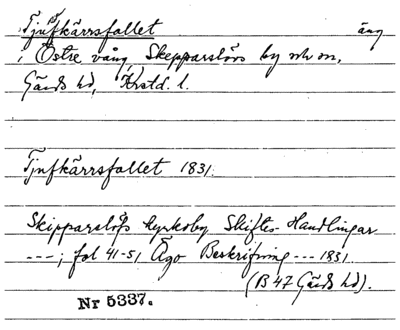 Tjufkärrsfallet äng
i Östre vång, Skepparslövs by och sn,
Gärds hd, Krstd. l.
Tjufkärrsfallet 1831.
Skipparslöfs kyrkoby Skiftes Handlingar
---; fol 41-51, Ägo Beskrifning --- 1831.
(B 47 Gärds hd).
Nr 5337.